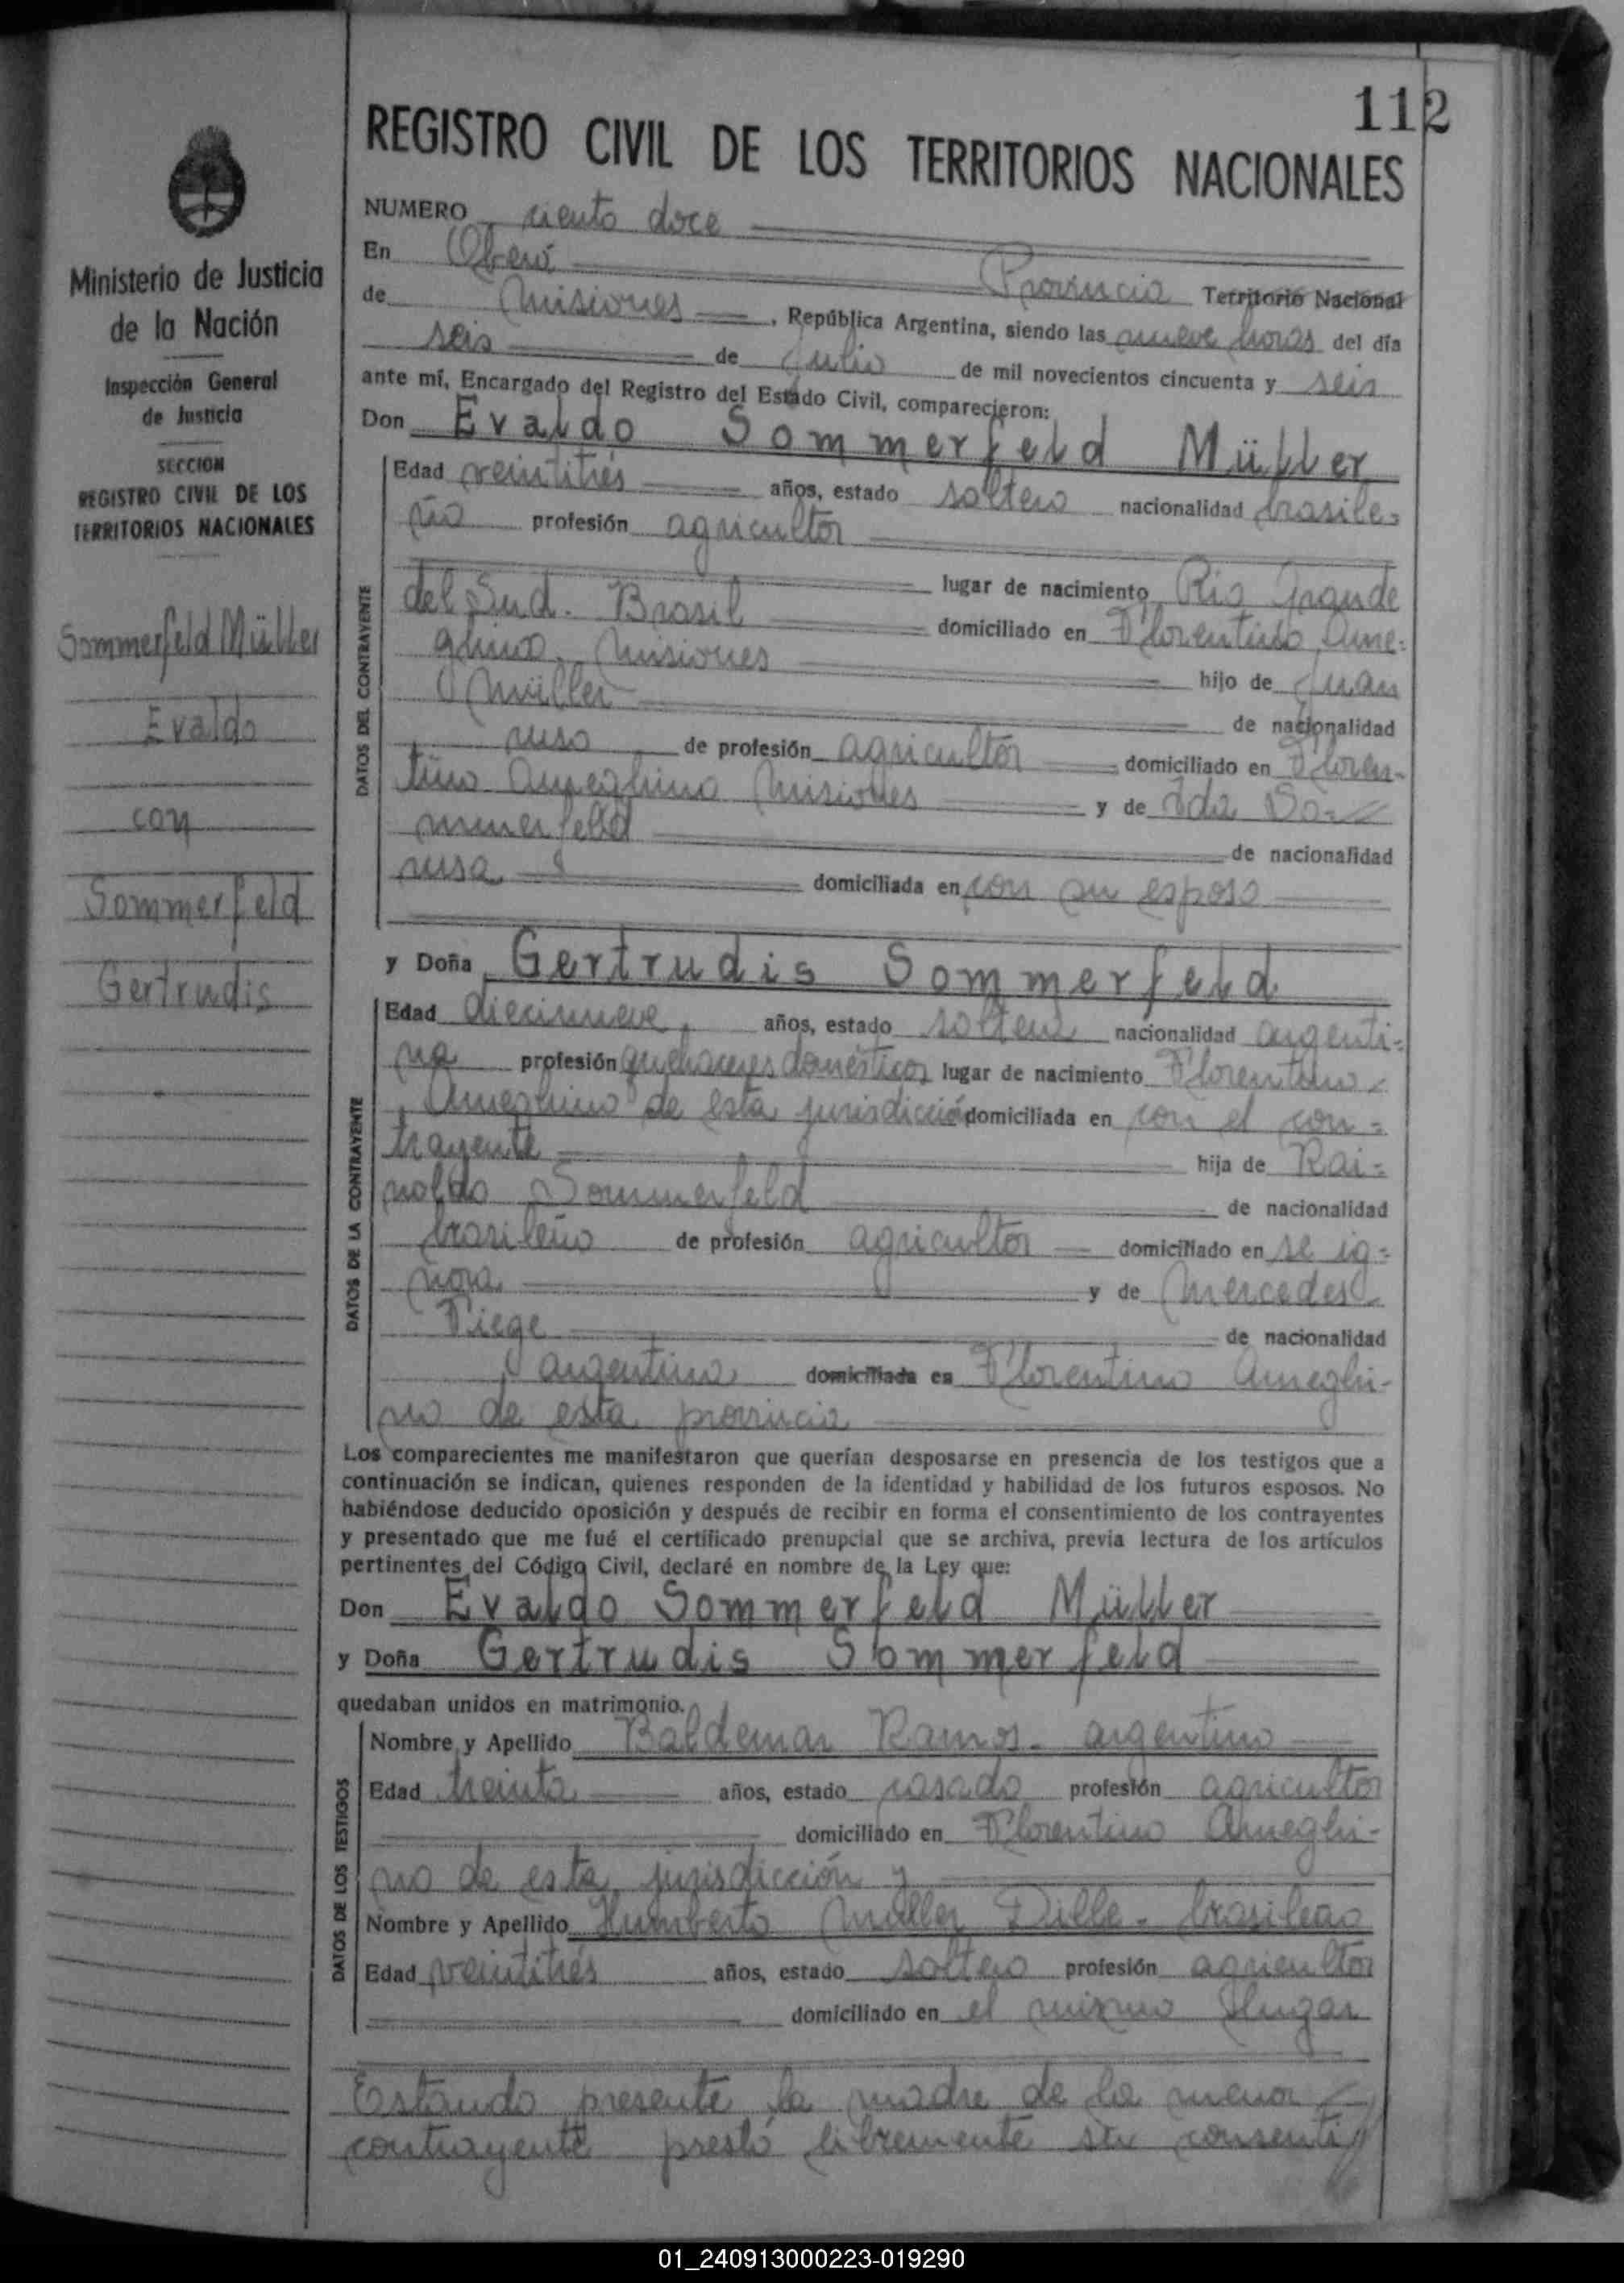 112
REGISTRO CIVIL DE LOS TERRITORIOS NACIONALES
Ministerio de Justicia
de la Nación
Inspección General
de Justicia
SECCION
REGISTRO CIVIL DE LOS
TERRITORIOS NACIONALES
Sommerfeld Müller
Evaldo
con
Sommerfeld
Gertrudis
NUMERO ciento doce
En Oberá Provincia Territorio Nacional
de Misiones, República Argentina, siendo las nueve horas del día
seis de Julio de mil novecientos cincuenta y seis
ante mí, Encargado del Registro del Estado Civil, comparecieron:
Don Evaldo Sommerfeld Müller
DATOS DEL CONTRAYENTE
Edad veintitrés años, estado soltero nacionalidad brasile-
ño profesión agricultor
lugar de nacimiento Río Grande
del Sud. Brasil domiciliado en Florentino Ame-
ghino, Misiones hijo de Juan
Müller de nacionalidad
ruso de profesión agricultor domiciliado en Floren-
tino Ameghino Misiones y de Ida So-
mmerfeld de nacionalidad
rusa domiciliada en con su esposo
y Doña Gertrudis Sommerfeld
DATOS DE LA CONTRAYENTE
Edad diecinueve, años, estado soltera nacionalidad argenti-
na profesión quehaceres domésticos lugar de nacimiento Florentino
Ameghino de esta jurisdicción domiciliada en con el con-
trayente hija de Rai-
noldo Sommerfeld de nacionalidad
brasileño de profesión agricultor domiciliado en se ig-
nora y de Mercedes
Fiege de nacionalidad
argentina domiciliada en Florentino Ameghi-
no de esta provincia
Los comparecientes me manifestaron que querían desposarse en presencia de los testigos que a
continuación se indican, quienes responden de la identidad y habilidad de los futuros esposos. No
habiéndose deducido oposición y después de recibir en forma el consentimiento de los contrayentes
y presentado que me fué el certificado prenupcial que se archiva, previa lectura de los artículos
pertinentes del Código Civil, declaré en nombre de la Ley que:
Don Evaldo Sommerfeld Müller
y Doña Gertrudis Sommerfeld
quedaban unidos en matrimonio.
DATOS DE LOS TESTIGOS
Nombre y Apellido Baldemar Ramos - argentino
Edad treinta años, estado casado profesión agricultor
domiciliado en Florentino Ameghi-
no de esta jurisdicción y
Nombre y Apellido Humberto Muller Dille - brasileño
Edad veintitrés años, estado soltero profesión agricultor
domiciliado en el mismo lugar
Estando presente la madre de la menor
contrayente prestó libremente su consenti
01_240913000223-019290